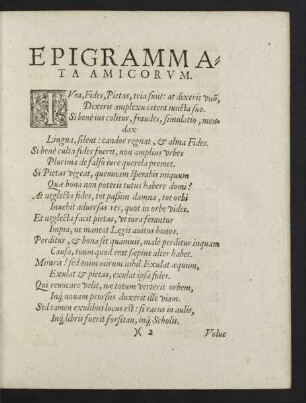 EPIGRAMMA-
TA AMICORVM.
IVra, Fides, Pietas, tria sunt: at dixeris vnū,
Dixeris amplexu cetera iuncta suo.
Si benè ius colitur, fraudes, simulatio, men-
dax
Lingua, silent: candor regnat, & alma Fides.
Si benè culta fides fuerit, non amplius vrbes
Plurima de falso iure querela premet.
Si Pietas vigeat, quemnam sperabis iniquum
Quæ bona non poteris tutus habere domi?
At neglecta fides, tot passim damna, tot orbi
Inuehit aduersas res, quot in orbe vides.
Et neglecta facit pietas, vt iura ferantur
Impia, ne maneat Legis auitus honos.
Perditur, & bona sit quamuis, malè perditur inquam
Causa, tuum quod erat sæpius alter habet.
Miraris? sed enim mirum nihil. Exulat æquum,
Exulat & pietas, exulat ipsa fides.
Qui reuocare velit, næ totum verterit orbem,
Inq́ nouam prorsus duxerit ille viam.
Sed tamen exulibus locus est: si rarus in aulis,
Inq́ libris fuerit forsitan, inq́ Scholis.
)( 2 Voluc